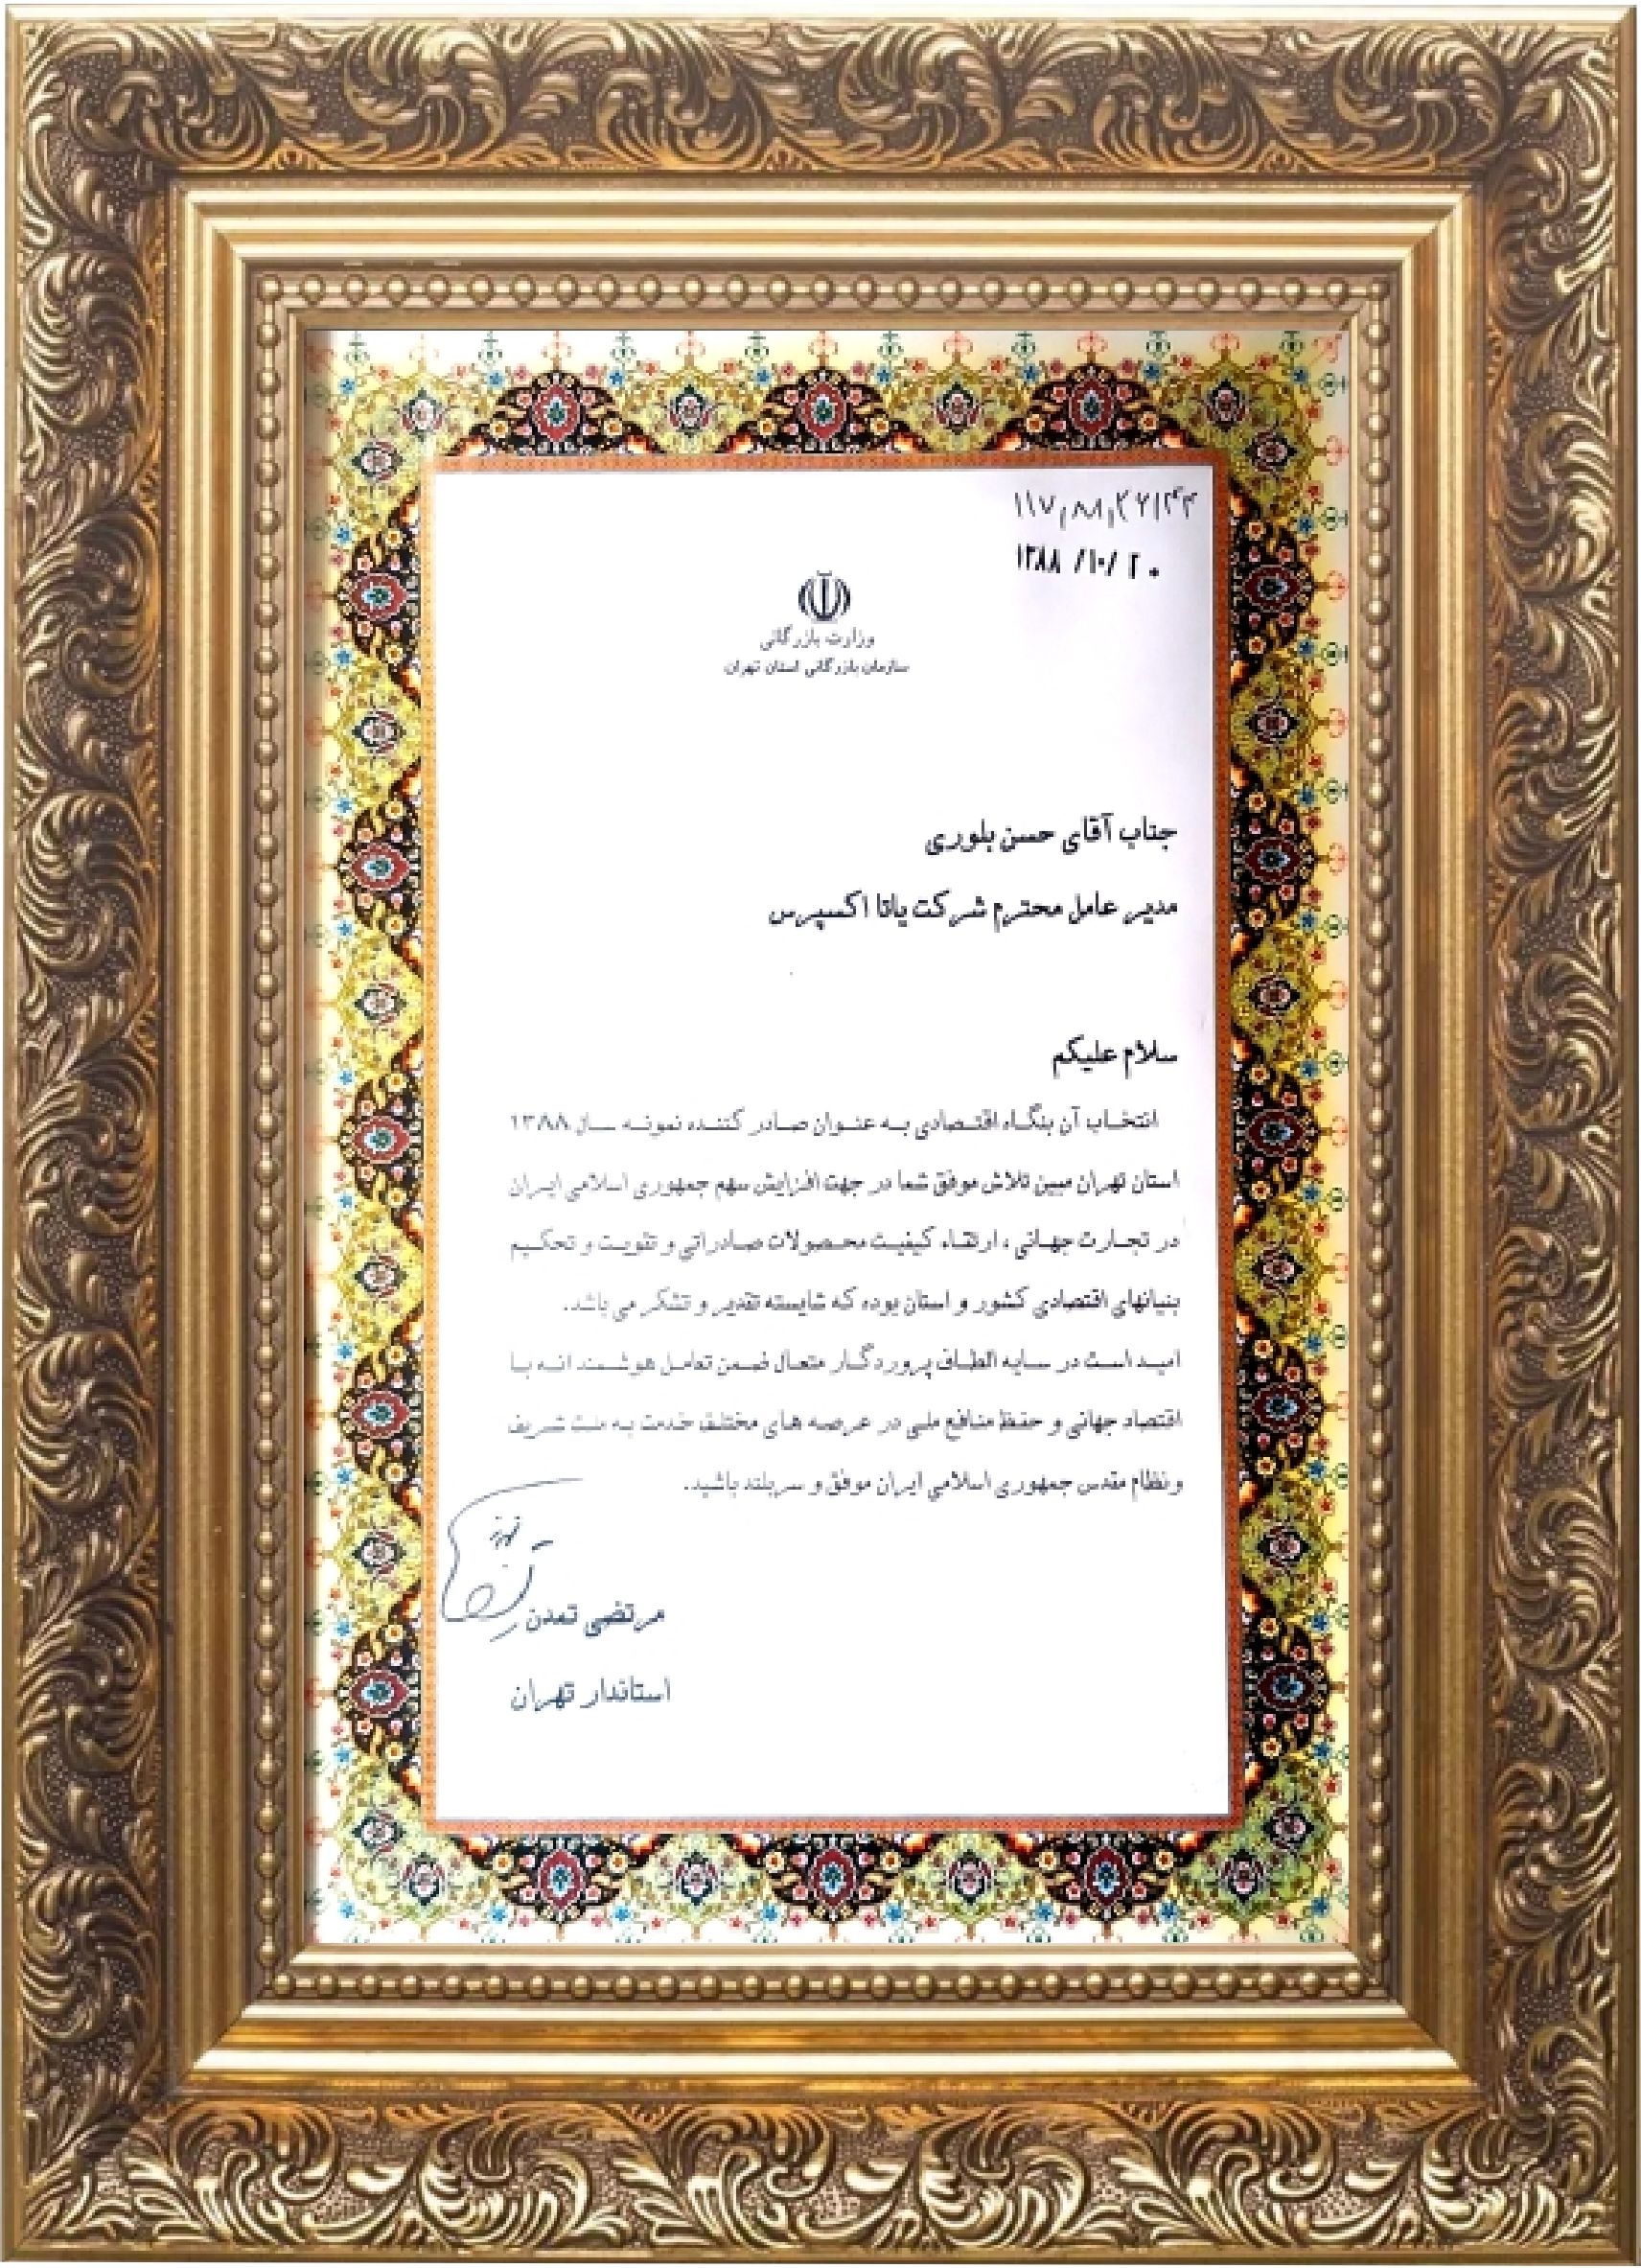 ۱۳۸۸ /۱۰/ ۲۰
وزارت بازرگانی
سازمان بازرگانی استان تهران
جناب آقای حسن بلوری
مدیر عامل محترم شرکت پاتا اکسپرس
سلام علیکم
انتخاب آن بنگاه اقتصادی به عنوان صادر کننده نمونه سال ۱۳۸۸
استان تهران مبین تلاش موفق شما در جهت افزایش سهم جمهوری اسلامی ایران
در تجارت جهانی ، ارتقاء کیفیت محصولات صادراتی و تقویت و تحکیم
بنیانهای اقتصادی کشور و استان بوده که شایسته تقدیر و تشکر می باشد.
امید است در سایه الطاف پروردگار متعال ضمن تعامل هوشمند انه با
اقتصاد جهانی و حفظ منافع ملی در عرصه های مختلف خدمت به ملت شریف
ونظام مقدس جمهوری اسلامی ایران موفق و سربلند باشید.
مرتضی تمدن
استاندار تهران